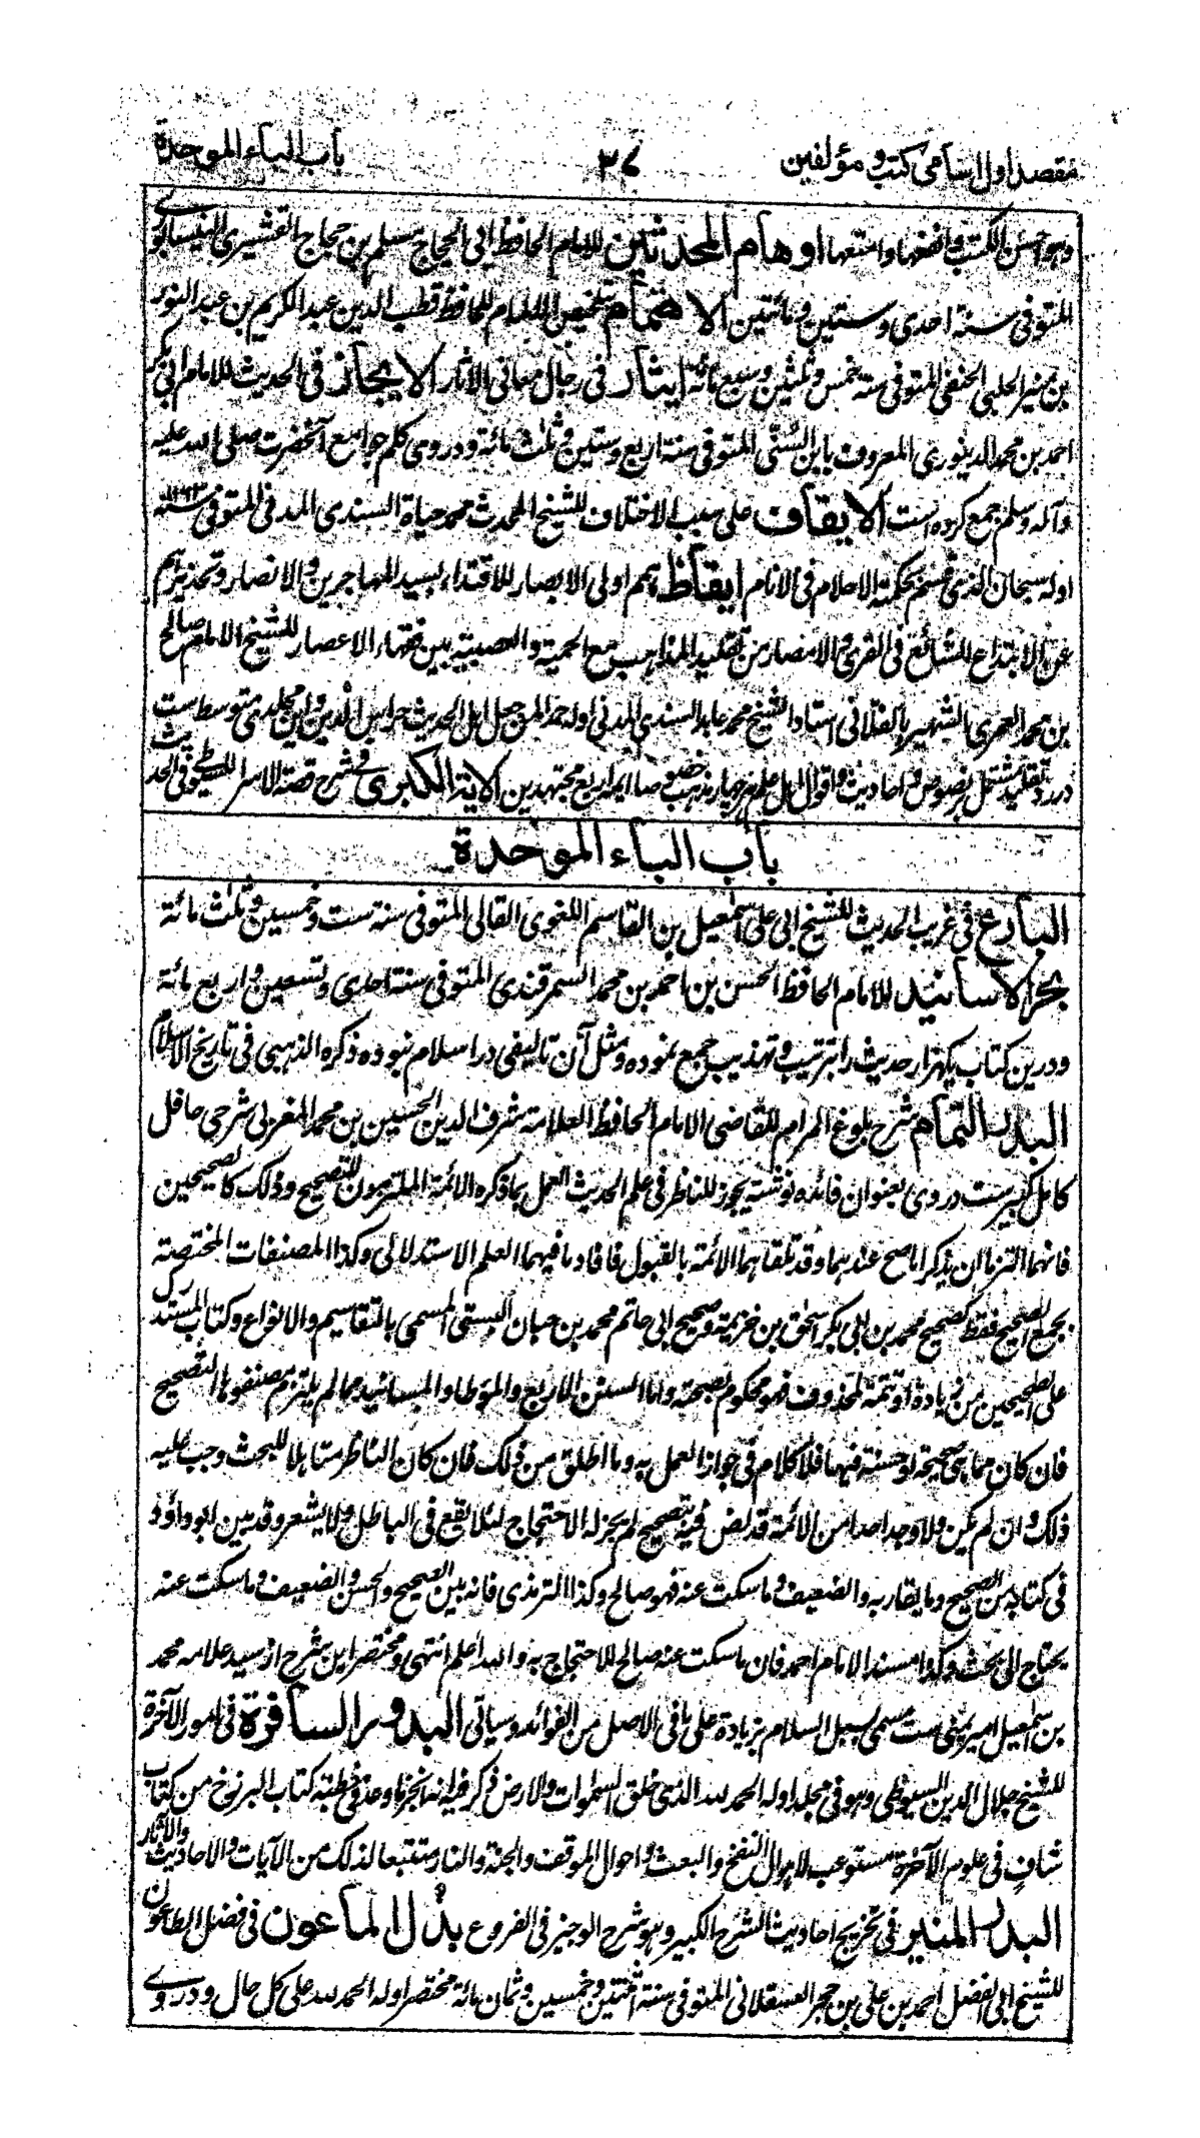 مقصد اول اسامی کتب و مؤلفین ۳۴ باب الباء الموحدة
وهو احسن الكتب وانفعها واسمعها اوهام المحدثين للامام الحافظ ابى الحجاج مسلم بن حجاج القشيرى النيسابورى
المتوفى سنة احدى وستين ومائتين الاهتمام تلخيص الالمام للحافظ قطب الدين عبد الكريم بن عبد النور
بن منير الحلبى الحنفى المتوفى سنة خمس وثلثين وسبع مائة ايثار فى رجال معانى الآثار الايجاز فى الحديث للامام ابى بكر
احمد بن محمد الدينورى المعروف بابن السنى المتوفى سنة اربع وستين وثلث مائة ودروى كلم جوامع آنحضرت صلى الله عليه
وآله وسلم جمع كرده است الايقاف على سبب الاختلاف للشيخ المحدث محمد حياة السندى المدنى المتوفى سنة ۱۱۶۳
اوله سبحان الذى قسم بحكمته الاحلام فى الانام ايقاظ همم اولى الابصار للاقتداء بسيد المهاجرين والانصار وتحذيرهم
عن الابتداع الشائع فى القرى والامصار من تقليد المذاهب مع الحمية والعصبية بين فقهاء الاعصار للشيخ الامام صالح
بن محمد العمرى الشهير بالفلانى استاد الشيخ محمد عابد السندى المدنى اوله حمدا لمن جعل اهل الحديث حراس الدين واين مجلدى متوسط است
در رد تقليد مشتمل بر نصوص واحاديث واقوال اهل علم هر چار مذهب خصوصا ايمه اربع مجتهدين الآية الكبرى فى شرح قصة الاسرا للسيوطى فى الحديث
باب الباء الموحدة
البارع فى غريب الحديث للشيخ ابى على اسمعيل بن القاسم اللغوى القالى المتوفى سنة ست وخمسين وثلث مائة
بحر الاسانيد للامام الحافظ الحسن بن احمد بن محمد السمرقندى المتوفى سنة احدى وتسعين واربع مائة
ودرين كتاب يكهزار حديث را بترتيب وتهذيب جمع نموده ومثل آن تاليفى در اسلام نبوده ذكره الذهبى فى تاريخ الاسلام
البدر التمام شرح بلوغ المرام للقاضى الامام الحافظ العلامة شرف الدين الحسين بن محمد المغربى شرحى حافل
كامل كبيرست دروى بعنوان فائده نوشته يجوز للناظر فى علم الحديث العمل بما ذكره الائمة الملتزمون للتصحيح وذلك كالصحيحين
فانهما التزما ان يذكرا ما صح عندهما وقد تلقاهما الائمة بالقبول فافاد ما فيهما العلم الاستدلالى وكذا المصنفات المختصة
بجمع الصحيح فقط كصحيح محمد بن ابى بكر اسحق بن خزيمة وصحيح ابى حاتم محمد بن حبان البستى المسمى بالتقاسيم والانواع وكتاب المستدرك
على الصحيحين من زيادة او تتمة لمحذوف فهو محكوم بصحته واما السنن الاربع والموطا والمسانيد مما لم يلتزم مصنفوها التصحيح
فان كان مما هى صحيحة او حسنة فيها فلا كلام فى جواز العمل به وما اطلق من ذلك فان كان الناظر متاهلا للبحث وجب عليه
ذلك وان لم يكن ولا وجد احدا من الائمة قد نص فيه بتصحيح لم يجز له الاحتجاج لئلا يقع فى الباطل ولا يشعر وقد بين ابو داؤد
فى كتابه من الصحيح وما يقاربه والضعيف وما سكت عنه فهو صالح وكذا الترمذى فانه بين الصحيح والحسن والضعيف وما سكت عنه
يحتاج الى بحث وكذا مسند الامام احمد فان ما سكت عنه صالح للاحتجاج به والله اعلم انتهى ومختصر اين شرح از سيد علامه محمد
بن اسمعيل امير يمنى ست مسمى سبل السلام بزيادة على ما فى الاصل من الفوائد وسياتى البدور السافرة فى امور الآخرة
للشيخ جلال الدين السيوطى وهو فى مجلد اوله الحمد لله الذى خلق السموات والارض ذكر فيه انه انجز ما وعد فى خطبة كتاب البرزخ من كتاب
شاف فى علوم الآخرة مستوعب لاهوال النفخ والبعث واحوال الموقف والجنة والنار متتبعا لذلك من الآيات والاحاديث والآثار
البدر المنير فى تخريج احاديث الشرح الكبير وهو شرح الوجيز فى الفروع بذل الماعون فى فضل الطاعون
للشيخ ابى الفضل احمد بن على بن حجر العسقلانى المتوفى سنة اثنتين وخمسين وثمان مائة مختصر اوله الحمد لله على كل حال ودروى